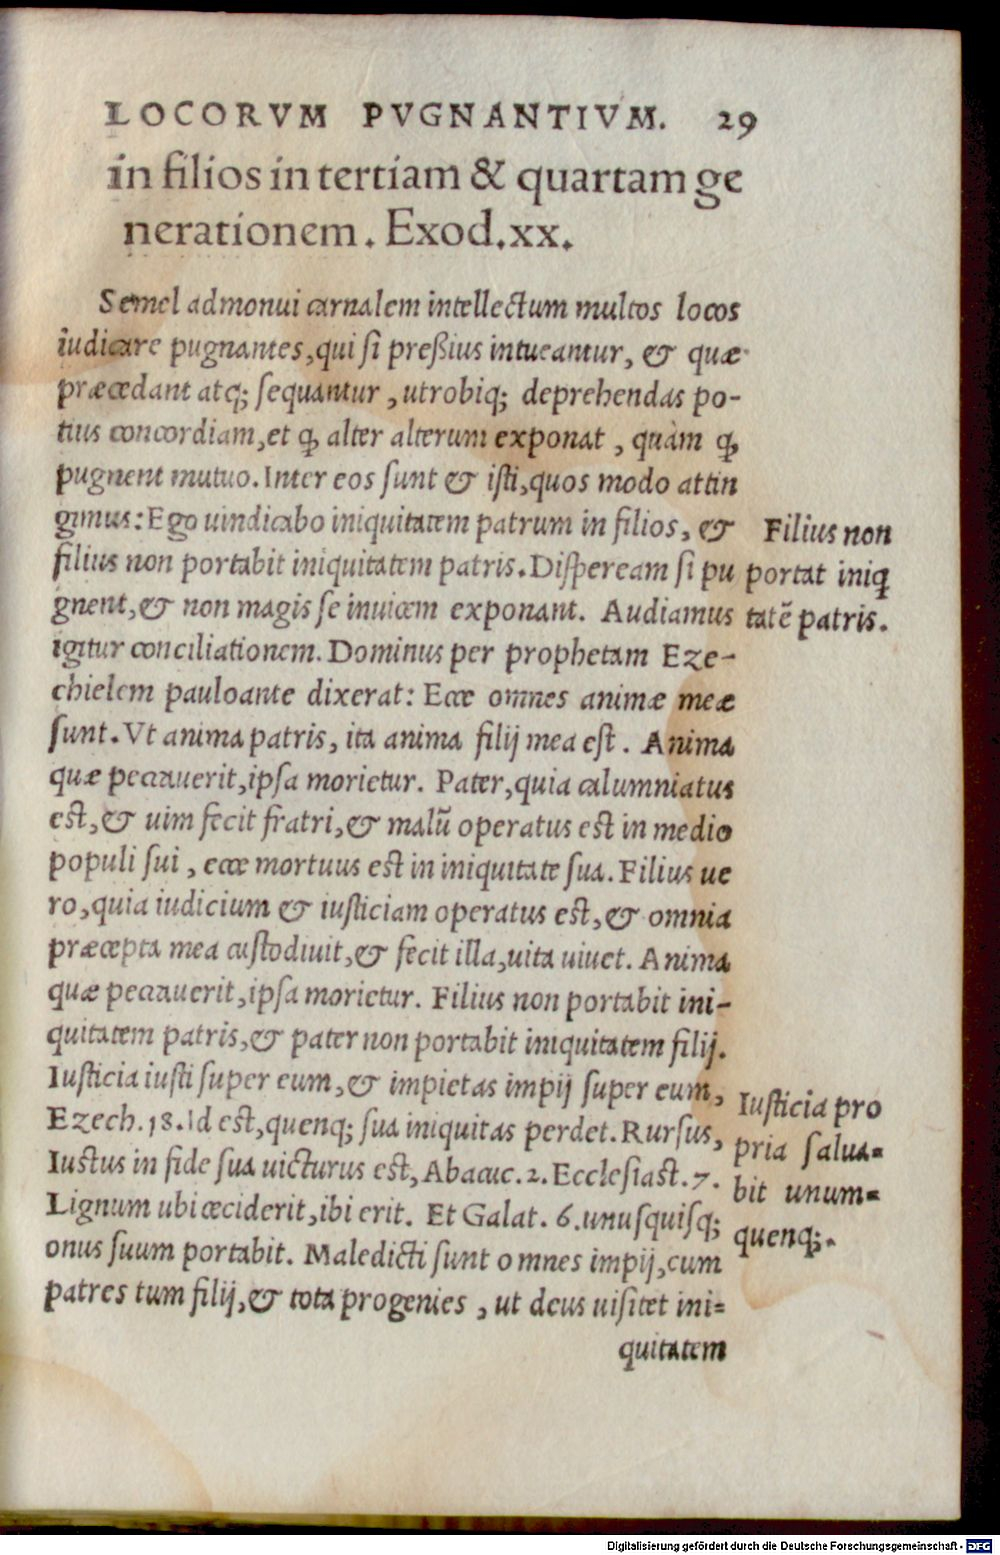 LOCORVM PVGNANTIVM. 29
in filios in tertiam & quartam ge
nerationem. Exod.xx.
Semel admonui carnalem intellectum multos locos
iudicare pugnantes, qui si preßius intueantur, & quæ
præcedant atq; sequantur, utrobiq; deprehendas po-
tius concordiam, et ꝙ alter alterum exponat, quàm ꝙ
pugnent mutuo. Inter eos sunt & isti, quos modo attin
gimus: Ego uindicabo iniquitatem patrum in filios, &
filius non portabit iniquitatem patris. Dispeream si pu
gnent, & non magis se inuicem exponant. Audiamus
igitur conciliationem. Dominus per prophetam Eze-
chielem pauloante dixerat: Ecce omnes animæ meæ
sunt. Vt anima patris, ita anima filij mea est. Anima
quæ peccauerit, ipsa morietur. Pater, quia calumniatus
est, & uim fecit fratri, & malũ operatus est in medio
populi sui, ecce mortuus est in iniquitate sua. Filius ue
ro, quia iudicium & iusticiam operatus est, & omnia
præcepta mea custodiuit, & fecit illa, uita uiuet. Anima
quæ peccauerit, ipsa morietur. Filius non portabit ini-
quitatem patris, & pater non portabit iniquitatem filij.
Iusticia iusti super eum, & impietas impij super eum,
Ezech.18. Id est, quenq; sua iniquitas perdet. Rursus,
Iustus in fide sua uicturus est, Abacuc.2. Ecclesiast.7.
Lignum ubi ceciderit, ibi erit. Et Galat. 6. unusquisq;
onus suum portabit. Maledicti sunt omnes impij, cum
patres tum filij, & tota progenies, ut deus uisitet ini=
quitatem
Filius non
portat iniꝗ
tatẽ patris.
Iusticia pro
pria salua=
bit unum=
quenq;.
Digitalisierung gefördert durch die Deutsche Forschungsgemeinschaft - DFG